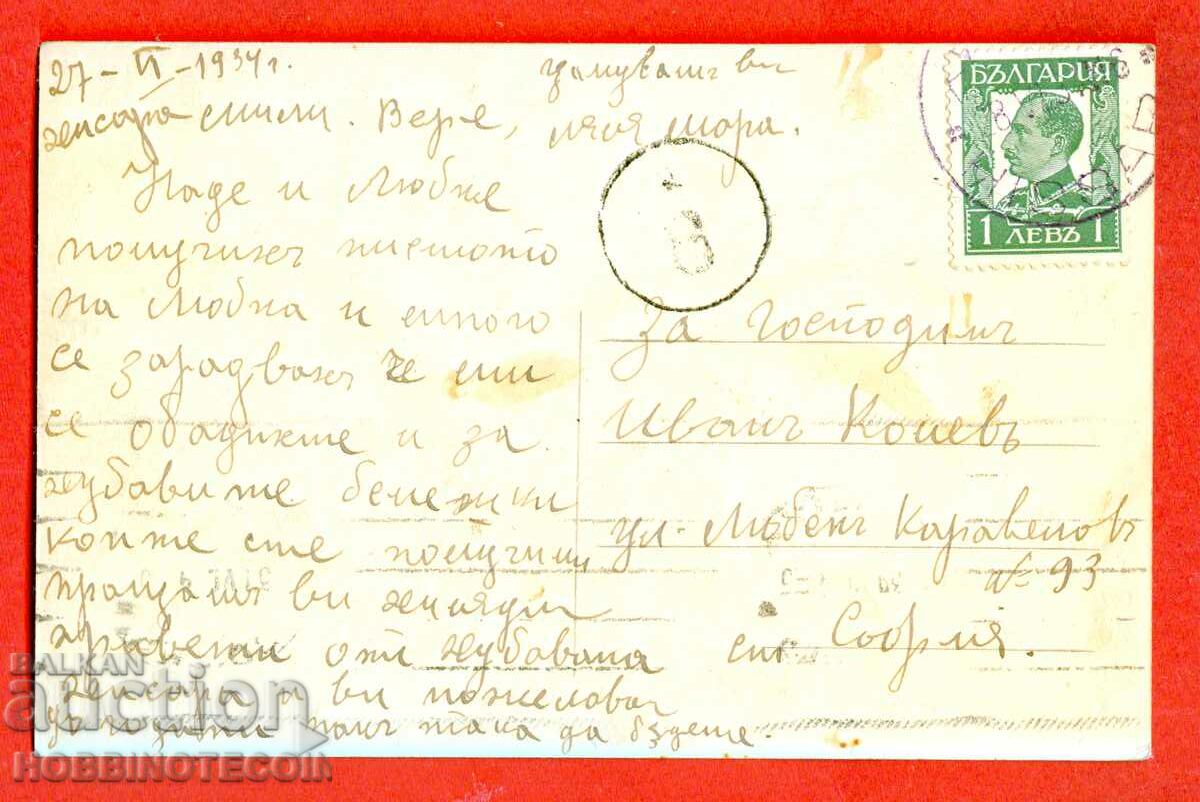 27-VI-1934г. целувамъ ви
Хисаря мили. Вере, леля Мара.
Наде и Любке
получихъ писмото
на Любка и много
се зарадвахъ че ми
се обадихте и за
хубавите бележки
които сте получили
пращамъ ви хиляди
поздрави от хубавата
Хисаря и ви пожелавам
догодина пакъ така да бъдете.
БЪЛГАРИЯ
1 ЛЕВЪ 1
За Господинъ
Иванъ Колевъ
ул. Любенъ Каравеловъ
№ 93
София.
BALKAN
auction
HOBBINOTECOM